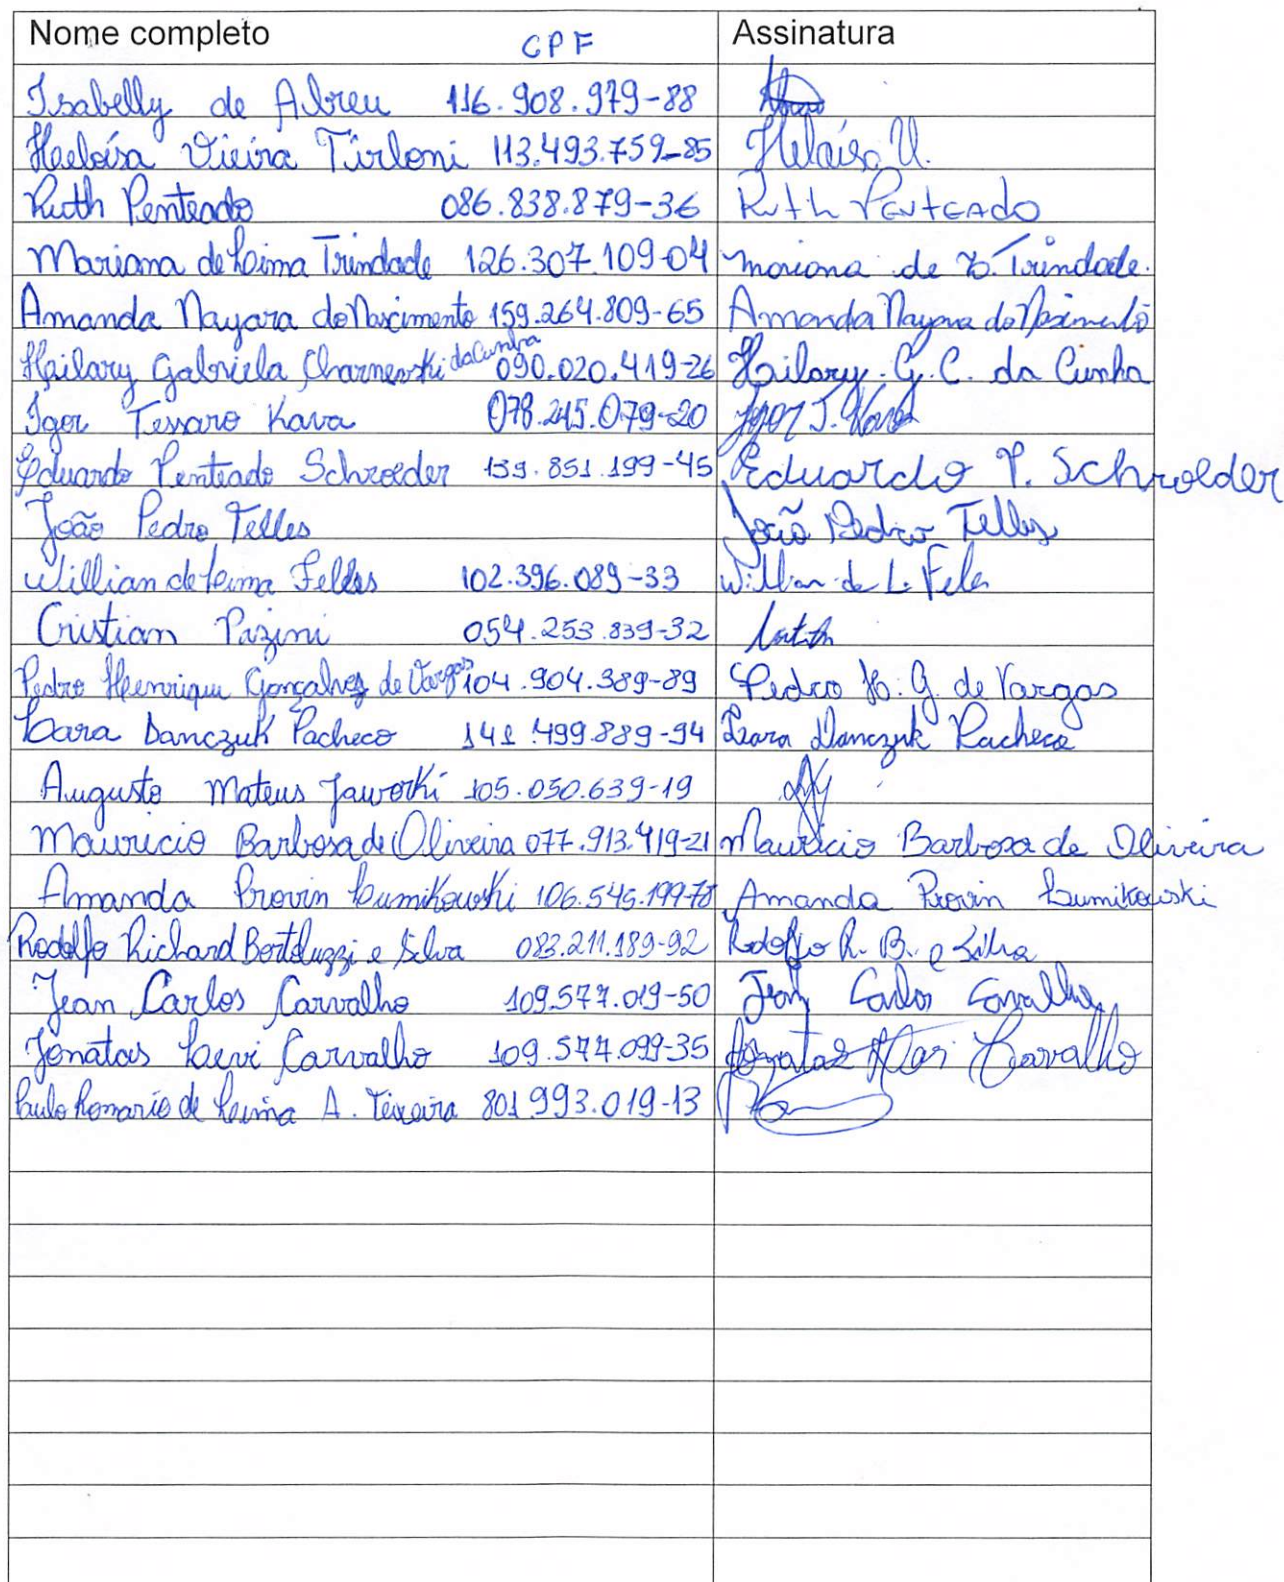 Nome completo CPF Assinatura
Isabelly de Abreu 116.908.979-88
Heeloísa Vieira Tirloni 113.493.759-85 Heloísa V.
Ruth Penteado 086.838.879-36 Ruth PENTEADO
Mariana de Lima Trindade 126.307.109-04 Mariana de L. Trindade.
Amanda Nayara do Nascimento 159.264.809-65 Amanda Nayara do Nascimento
Hailary Gabriela Charnevski da Cunha 090.020.419-26 Hailary. G. C. da Cunha
Igor Tessaro Kava 078.245.079-20 Igor T. Kava
Eduardo Penteado Schroeder 139.851.199-45 Eduardo P. Schroelder
João Pedro Telles João Pedro Telles
Willian de Lima Feldes 102.396.089-33 Willian de L. Felds
Cristian Pazini 054.253.839-32
Pedro Henrique Gonçalves de Vargas 104.904.389-89 Pedro H. G. de Vargas
Lara Danczuk Pacheco 141.499.889-94 Lara Danczuk Pacheco
Augusto Mateus Jaworki 105.050.639-19
Mauricio Barbosa de Oliveira 077.913.419-21 Mauricio Barbosa de Oliveira
Amanda Provin Lumikowski 106.545.199-78 Amanda Provin Lumikowski
Rodolfo Richard Bortoluzzi e Silva 083.211.189-92 Rodolfo R. B. e Silva
Jean Carlos Carvalho 109.577.019-50 Jean Carlos Carvalho
Jonatas Levi Carvalho 109.577.099-35 Jonatas Carvalho
Paulo Romario de Lima A. Teixeira 801.993.019-13